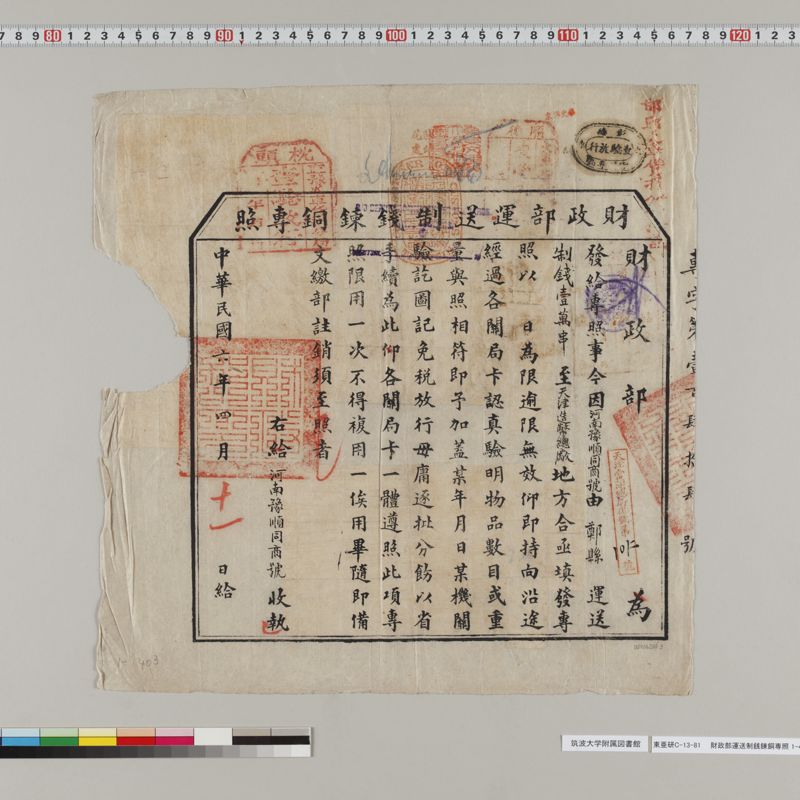 財政部運送制錢鍊銅專照
財政部為
發給專照事今因河南豫順同商號由鄭縣運送
制錢壹萬串至天津造幣總廠地方合亟填發專
照以　日為限逾限無效仰即持向沿途
經過各關局卡認真驗明物品數目或重
量與照相符即予加蓋某年月日某機關
驗訖圖記免稅放行毋庸逐批分飭以省
手續為此仰各關局卡一體遵照此項專
照限用一次不得複用一俟用畢隨即備
文繳部註銷須至照者
右給河南豫順同商號收執
中華民國六年四月十一日給
查驗放行
筑波大学附属図書館
東亜研C-13-81　財政部運送制銭錬銅専照 1-4